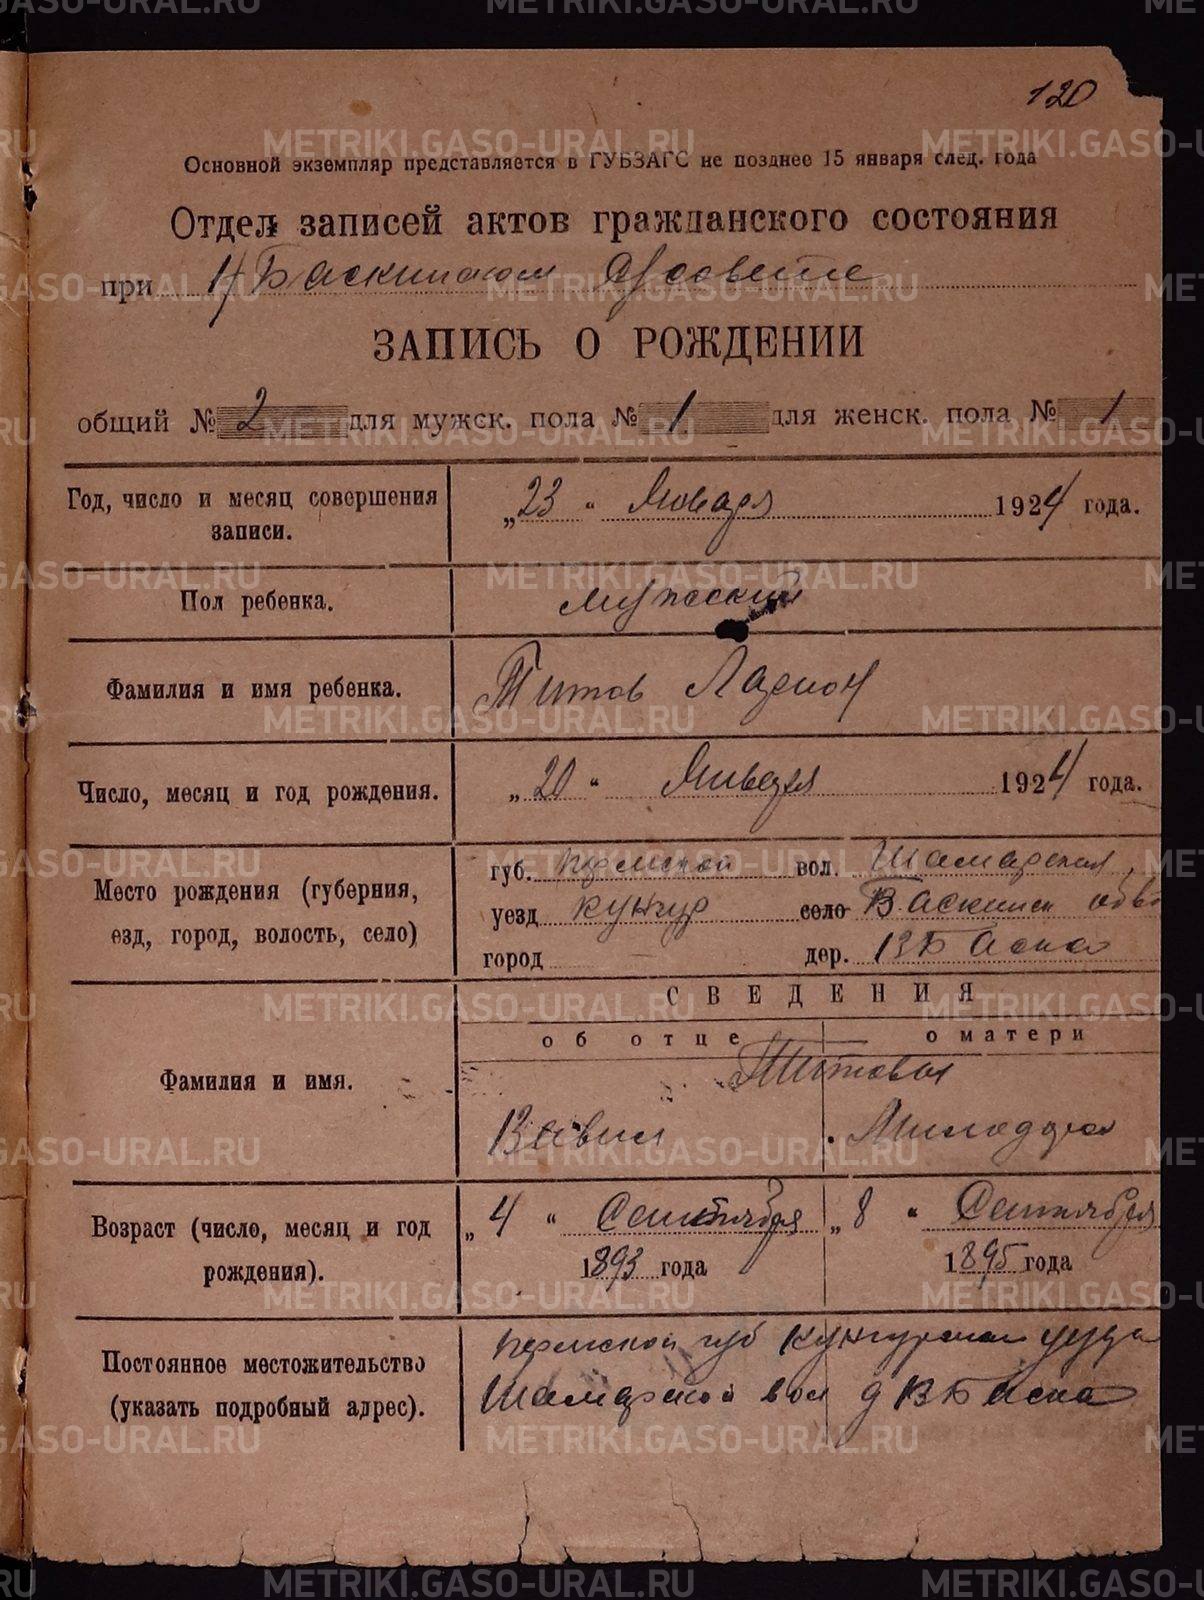 120
Основной экземпляр представляется в ГУБЗАГС не позднее 15 января след. года
Отдел записей актов гражданского состояния
при
ЗАПИСЬ О РОЖДЕНИИ
общий № 2 для мужск. пола № 1 для женск. пола № 1
Год, число и месяц совершения записи. „23“ Января 1924 года.
Пол ребенка. мужеский
Фамилия и имя ребенка. Титов Ларион
Число, месяц и год рождения. „20“ Января 1924 года.
Место рождения (губерния, езд, город, волость, село)
губ. пермской вол. Шамарская
уезд кунгур село
город дер. В Баска
СВЕДЕНИЯ
об отце о матери
Фамилия и имя. Титовы
Вавил
Возраст (число, месяц и год рождения). „4“ Сентября 1893 года „8“ Сентября 1895 года
Постоянное местожительство (указать подробный адрес).
пермской губ кунгурском уезда
Шамарской вол д В Баска
METRIKI.GASO-URAL.RU